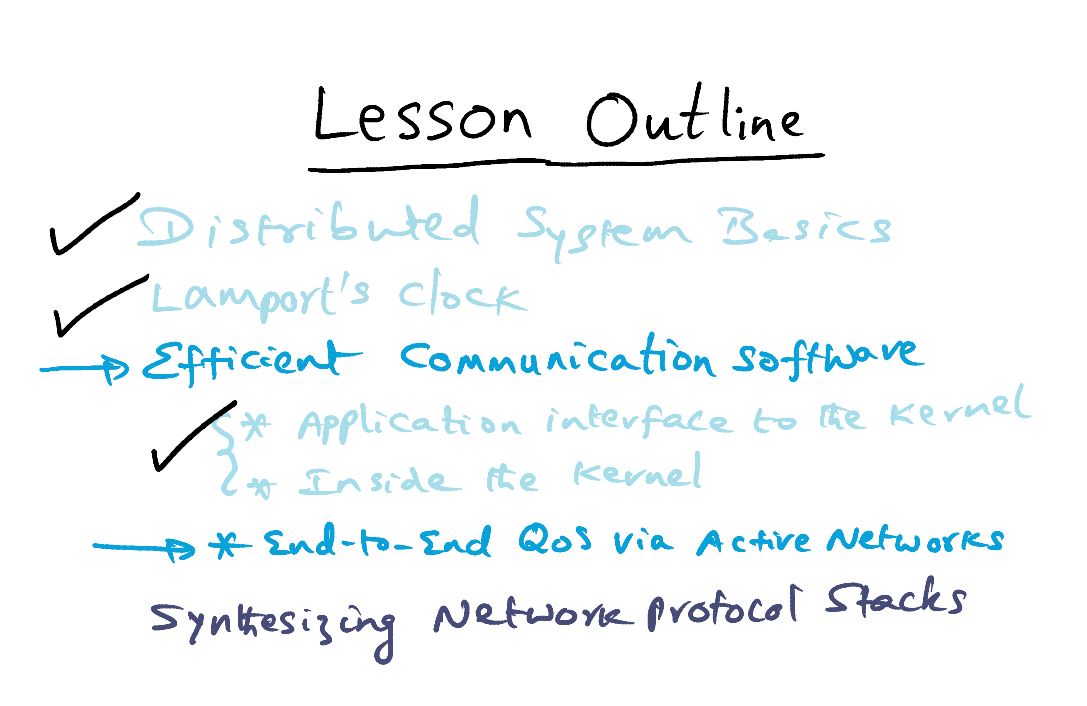 Lesson Outline
Distributed System Basics
Lamport's Clock
Efficient Communication software
* Application interface to the Kernel
* Inside the Kernel
* End-to-End QoS via Active Networks
Synthesizing Network protocol Stacks